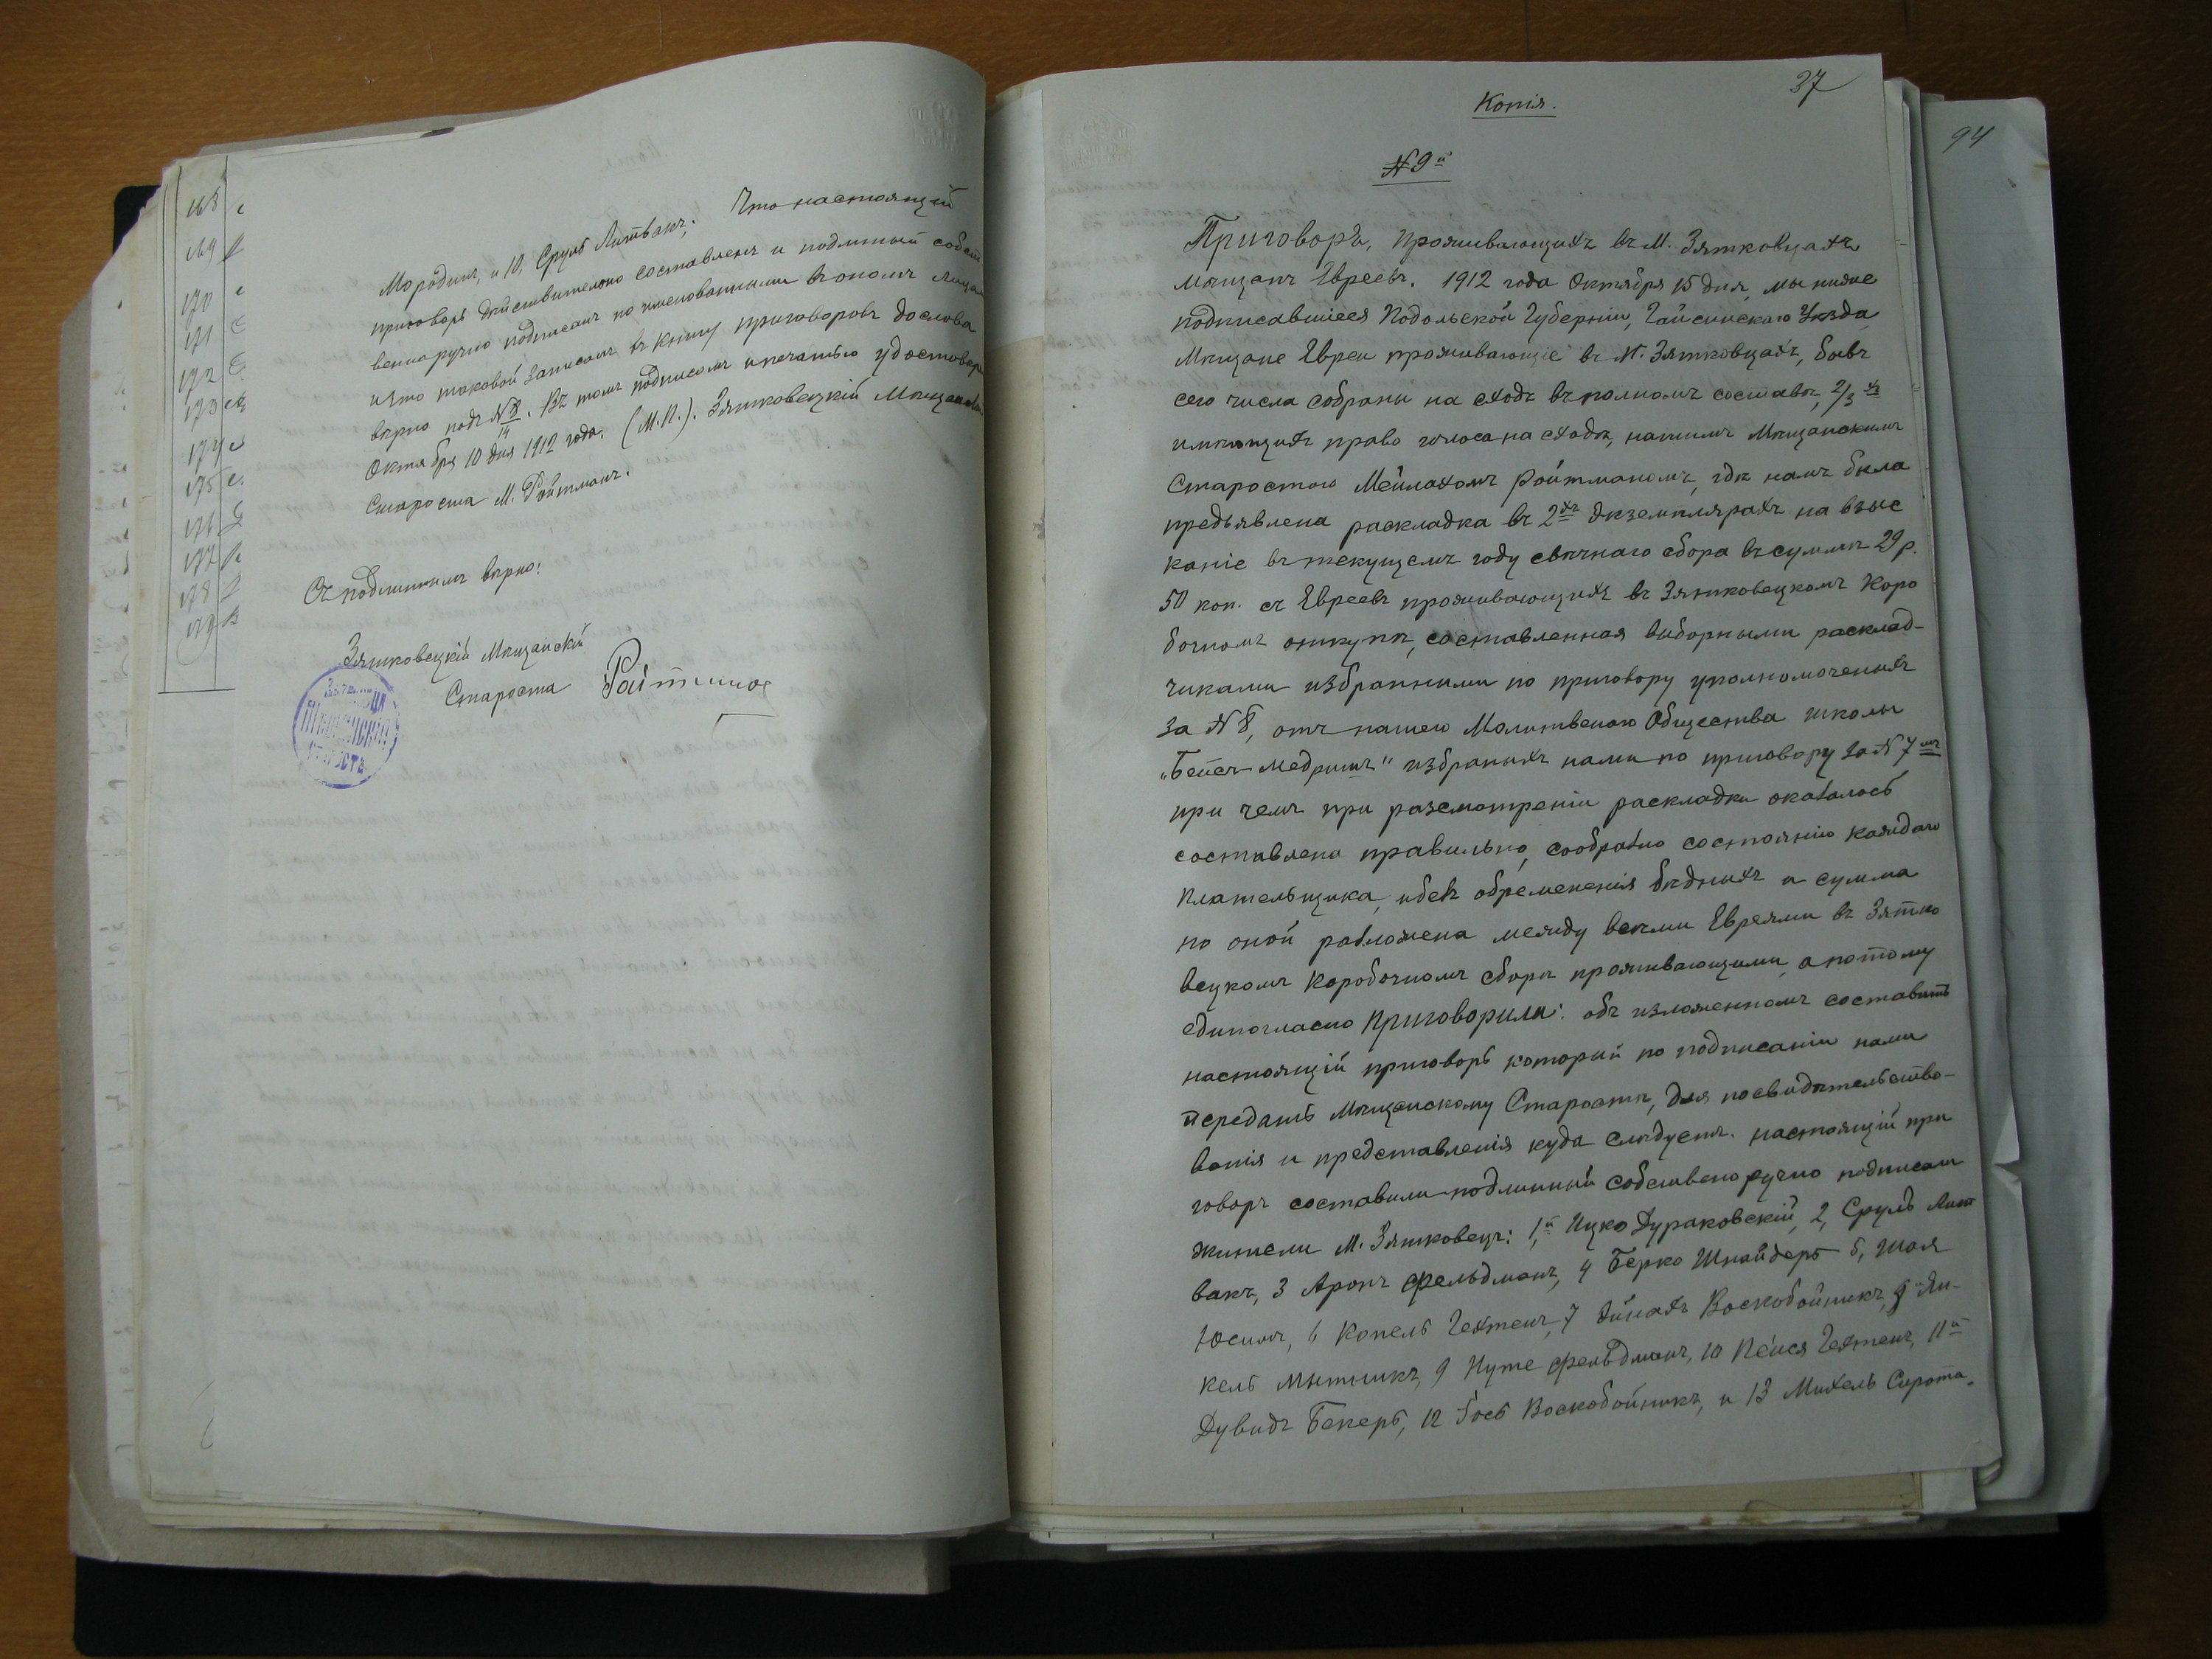 168
169
170
171
172
173
174
175
176
177
178
179
Что настоящій
Мородинъ, и 10, Сруль Литвакъ;
приговоръ дѣйствительно составленъ и подлиный собст
венноручно подписанъ по именованными въ ономъ лица
и что таковой записанъ въ книгу приговоровъ дослова
вѣрно подъ N 8/14. Въ томъ подписомъ и печатью удостовѣр
Октября 10 дня 1912 года. (М.П.). Зятковецкій Мѣщанск
Староста М. Ройтманъ.
Съ подлинымъ вѣрно:
Зятковецкій Мѣщанскій
Староста Ройтманъ
37
94
Копія.
N 9й
Приговоръ, проживающихъ въ М. Зятковцахъ
мѣщанъ Евреевъ. 1912 года Октября 15 дня, мы ниже
подписавшіеся Подольской Губерніи, Гайсинскаго Уѣзда
Мѣщане Евреи проживающіе въ М. Зятковцахъ, бывъ
сего числа собраны на сходъ въ полномъ составѣ, 2/3хъ
имѣющихъ право голоса на сходѣ, нашимъ Мѣщанскимъ
Старостою Мейлахомъ Ройтманомъ, гдѣ намъ была
предъявлена раскладка въ 2хъ экземплярахъ на взыс
каніе въ текущемъ году свѣчнаго сбора въ суммѣ 29 р.
50 коп. съ Евреевъ проживающихъ въ Зятковецкомъ Коро
бочномъ откупѣ, составленная выборными расклад-
чиками избранными по приговору уполномоченыхъ
за N 8, отъ нашего Молитвеного Общества школы
„Бейсъ-Медришъ" избраныхъ нами по приговору за N 7мъ
при чемъ при разсмотреніи раскладки оказалось
составлена правильно, сообразно состоянію каждаго
плательщика, и безъ обремененія бѣдныхъ а сумма
по оной разложена между всѣми Евреями въ Зятко
вецкомъ Коробочномъ сборѣ проживающими, а потому
единогласно Приговорили: объ изложенномъ составить
настоящій приговоръ который по подписаніи нами
передать Мѣщанскому Старостѣ, для посвидѣтельство-
ванія и представленія куда слѣдуетъ. настоящій при
говоръ составили подлинный собственоручно подписали
жители М. Зятковецъ: 1,й Ицко Дураковскій, 2, Сруль Лит
вакъ, 3 Аронъ Фельдманъ, 4 Берко Шнайдеръ 5, Шая
Юсимъ, 6 Копель Гехтенъ, 7 Айнахъ Воскобойникъ, 8й Ян-
кель Мытникъ, 9 Нуте Фельдманъ, 10 Пейся Гехтенъ, 11й
Дувидъ Бекеръ, 12 Іось Воскобойникъ, и 13 Михель Сирота.